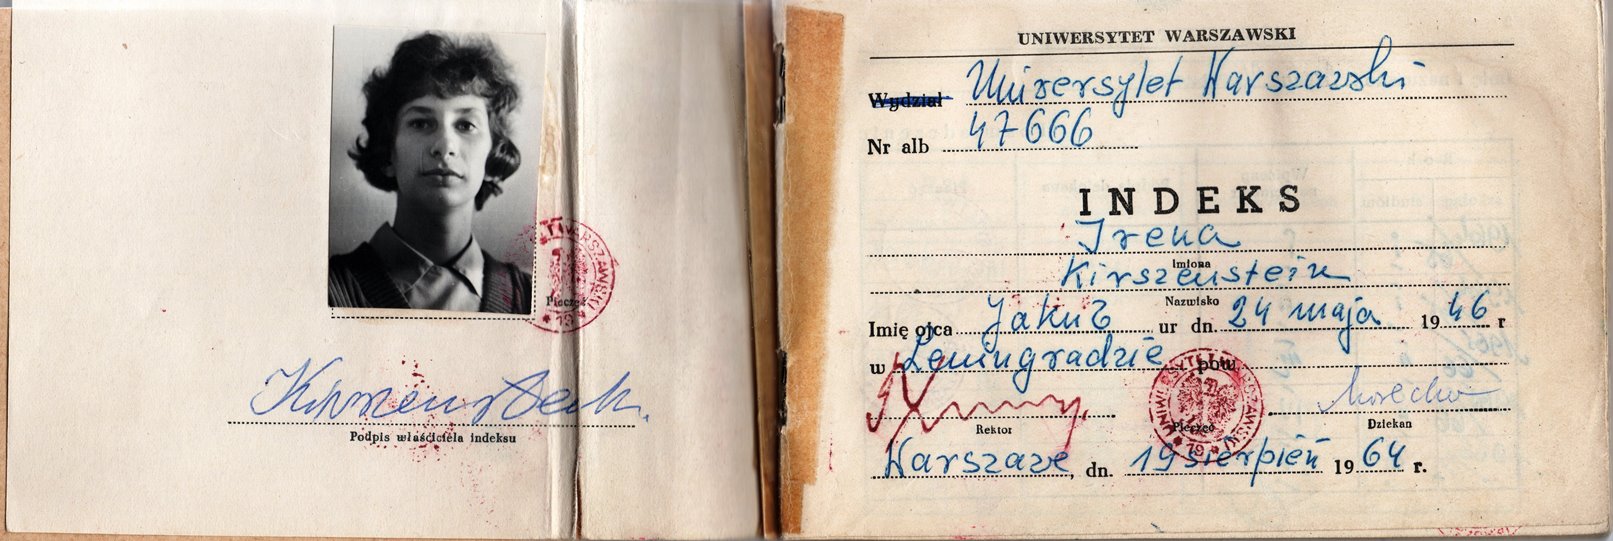 Pieczęć
UNIWERSYTET WARSZAWSKI
Kirszenstein
Podpis właściciela indeksu
UNIWERSYTET WARSZAWSKI
Wydział Uniwersytet Warszawski
Nr alb 47666
INDEKS
Irena
Imiona
Kirszenstein
Nazwisko
Imię ojca Jakub ur dn. 24 maja 1946 r
w Leningradzie pow.
UNIWERSYTET WARSZAWSKI
Rektor Pieczęć Dziekan
Warszawa, dn. 19 sierpień 1964 r.